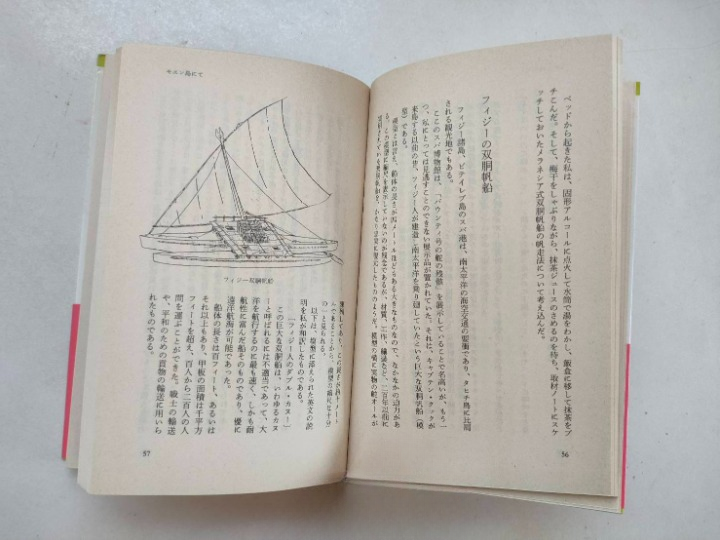 ベッドから起きた私は、固形アルコールに点火して水筒で湯をわかし、飯盒に移して抹茶をブ
チこんだ。そして、梅干をしゃぶりながら、抹茶ジュースのさめるのを待ち、取材ノートにスケ
ッチしておいたメラネシア式双胴帆船の帆走法について考え込んだ。
フィジーの双胴帆船
フィジー諸島、ビテイレブ島のスバ港は、南太平洋の海空交通の要衝であり、タヒチ島に比肩
される観光地でもある。
ここのスバ博物館は、「バウンティ号の舵の残骸」を展示していることで名高いが、もう一
つ、私にとっては見逃すことのできない展示品が置かれていた。それは、キャプテン・クックが
来島する以前の昔、フィジー人が建造し南太平洋を乗り廻していたという巨大な双胴帆船(模
型)である。
56
モエン島にて
フィジー双胴帆船
以下は、模型に添えられた英文の説
明を私が和訳したものである。
この巨大な双胴船は、いわゆるカヌ
ー(フィジー人のダブル・カヌー)
と呼ばれるには不適当であって、大
洋を航行するのに最も速く、しかも耐
航性に富んだ船そのものであり、優に
遠洋航海が可能であった。
船体の長さは百フィート、あるいは
それ以上もあり、甲板の面積は千平方
フィートを超え、百人から二百人の人
間を運ぶことができた。戦士の輸送
や、平和のための貨物の輸送に用いら
れたものである。
57